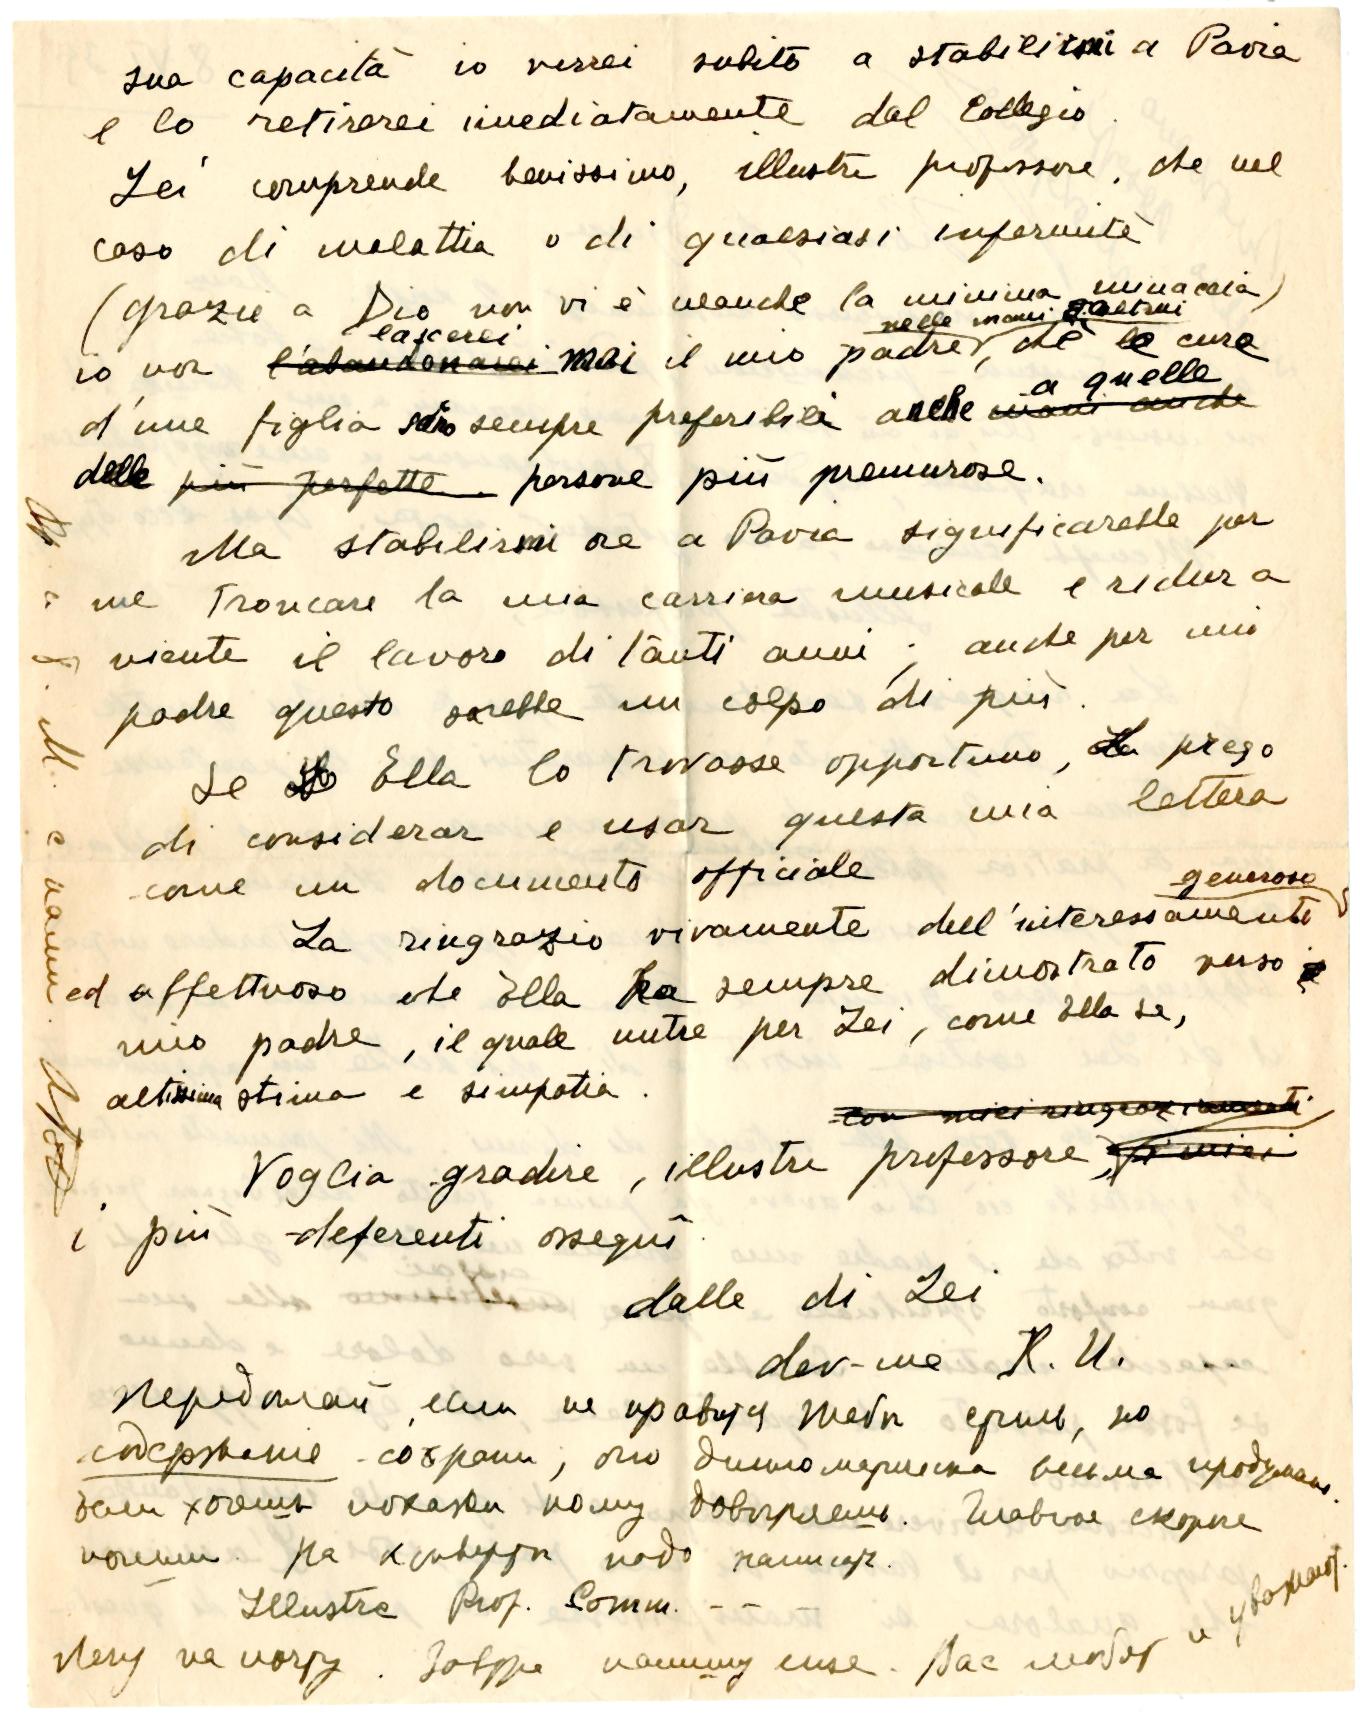 sua capacità io verrei subito a stabilirmi a Pavia
e lo retirerei imediatamente dal Collegio.
Lei comprende benissimo, illustre professore, che nel
caso di malattia o di qualsiasi infermità
(grazie a Dio non vi è neanche la minima minaccia)
lascerei nelle mani d'altrui
io non l'abandonarei mai il mio padre, chè le cure
a quelle
d'una figlia sono sempre preferibili anche mani anche
delle più perfette persone più premurose.
Ma stabilirmi ora a Pavia significarebbe per
me troncare la mia carriera musicale e ridur a
niente il lavoro di tanti anni; anche per mio
padre questo sarebbe un colpo di più.
Se Ella lo trovasse opportuno, La prego
di considerar e usar questa mia lettera
come un documento officiale
generoso
La ringrazio vivamente dell'interessamento
ed affettuoso che Ella ha sempre dimostrato verso
mio padre, il quale nutre per Lei, come Ella sa,
altissima stima e simpatia.
con miei ringraziamenti
Voglia gradire, illustre professore, i miei
i più deferenti ossequi
dalla di Lei
dev-ma R. U.
Переделай, если не нравится тебе стиль, но
содержание сохрани, оно дипломатически весьма продумано.
Если хочешь покажи кому доверяешь. Главное скорее
пошли. На конверте надо написать.
Illustre Prof. Comm. - -
Лечу на почту. Завтра напишу еще. Вас любят и уважают.